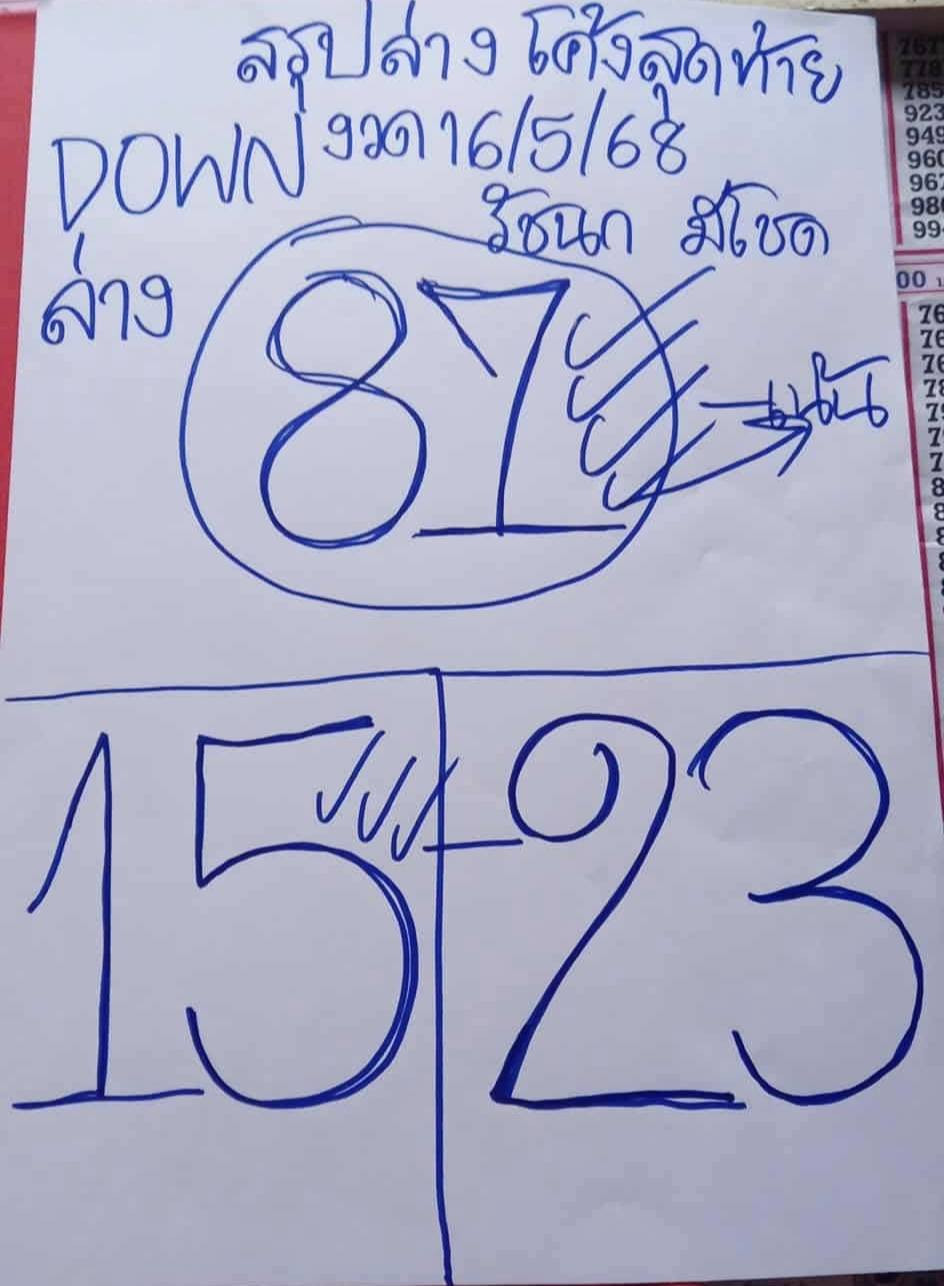 สรุปล่าง โค้งสุดท้าย
DOWN งวด 16/5/68
รัชนก มีโชค
ล่าง
87
เน้น
15 23
767
778
785
923
949
960
967
980
99
00
76
76
76
78